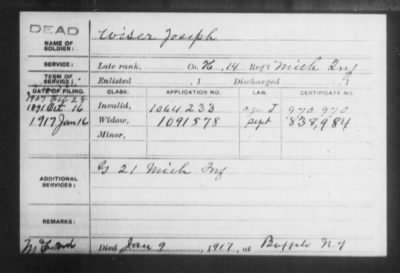 DEAD
NAME OF SOLDIER:
Wiser Joseph
SERVICE:
Late rank, Co. H, 14 Reg't Mich Inf
TERM OF SERVICE:
Enlisted , 1 Discharged , 1
DATE OF FILING. CLASS. APPLICATION NO. LAW. CERTIFICATE NO.
1891 Oct 16 Invalid, 1064233 970 970
1917 Jan 16 Widow, 1091578 Sept 838,984
Minor,
ADDITIONAL SERVICES:
G 21 Mich Inf
REMARKS:
Died Jan 9, 1917, at Buffalo NY